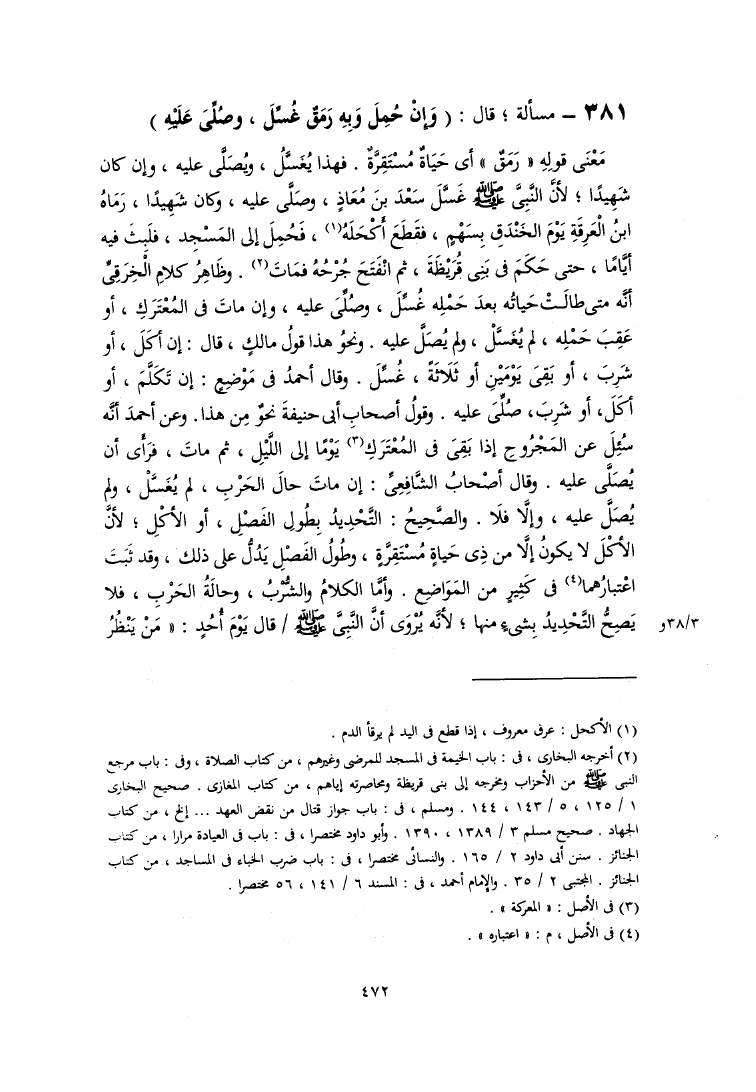 ٣٨١ – مسألة ؛ قال : ( وَإِنْ حُمِلَ وَبِه رَمَقٌ غُسِّلَ ، وصُلِّىَ عَلَيْهِ )
مَعْنَى قولِهِ « رَمَقٌ » أى حَيَاةٌ مُسْتَقِرَّةٌ . فهذا يُغَسَّلُ ، ويُصَلَّى عليه ، وإن كان
شَهِيدًا ؛ لأنَّ النَّبِىَّ ﷺ غَسَّلَ سَعْدَ بنَ مُعَاذٍ ، وصَلَّى عليه ، وكان شَهِيدًا ، رَمَاهُ
ابنُ العَرِقَةِ يَوْمَ الخَنْدَقِ بِسَهْمٍ ، فقَطَعَ أكْحَلَهُ(١) ، فَحُمِلَ إلى المَسْجِد ، فلَبِثَ فيه
أيَّامًا ، حتى حَكَمَ فى بَنِى قُرَيْظَةَ ، ثم انْفَتَحَ جُرْحُهُ فمَاتَ(٢) . وظَاهِرُ كلامِ الْخِرَقِىِّ
أنَّه متى طالَتْ حَياتُه بعدَ حَمْلِه غُسِّلَ ، وصُلِّىَ عليه ، وإن ماتَ فى المُعْتَرَكِ ، أو
عَقِبَ حَمْلِه ، لم يُغَسَّلْ ، ولم يُصَلَّ عليه . ونحوُ هذا قولُ مالكٍ ، قال : إن أكَلَ ، أو
شَرِبَ ، أو بَقِىَ يَوْمَيْنِ أو ثَلَاثَةً ، غُسِّلَ . وقال أحمدُ فى مَوْضِعٍ : إن تَكَلَّمَ ، أو
أكَلَ، أو شَرِبَ، صُلِّىَ عليه . وقولُ أصحابِ أبى حنيفةَ نحوٌ مِن هذا. وعن أحمدَ أنَّه
سُئِلَ عن المَجْرُوحِ إذا بَقِىَ فى المُعْتَرَكِ(٣) يَوْمًا إلى اللَّيْلِ ، ثم ماتَ ، فرَأى أن
يُصَلَّى عليه . وقال أصْحابُ الشَّافِعِىِّ : إن ماتَ حالَ الحَرْبِ ، لم يُغَسَّلْ ، ولم
يُصَلَّ عليه ، وإلَّا فلَا . والصَّحِيحُ : التَّحْدِيدُ بِطُولِ الفَصْلِ ، أو الأكْلِ ؛ لأنَّ
الأكْلَ لا يكونُ إلَّا من ذِى حَياةٍ مُسْتَقِرَّةٍ ، وطُولُ الفَصْلِ يَدُلُّ على ذلك ، وقد ثَبَتَ
اعْتبارُهما(٤) فى كَثِيرٍ من المَوَاضِعِ . وأمَّا الكلامُ والشُّرْبُ ، وحالَةُ الحَرْبِ ، فلا
يَصِحُّ التَّحْدِيدُ بشىءٍ منها ؛ لأنَّه يُرْوَى أنَّ النَّبِىَّ ﷺ / قال يَوْمَ أُحُدٍ : « مَنْ يَنْظُرُ
٣٨/٣و
(١) الأكحل : عرق معروف ، إذا قطع فى اليد لم يرقأ الدم .
(٢) أخرجه البخارى ، فى : باب الخيمة فى المسجد للمرضى وغيرهم ، من كتاب الصلاة ، وفى : باب مرجع
النبى ﷺ من الأحزاب ومخرجه إلى بنى قريظة ومحاصرته إياهم ، من كتاب المغازى . صحيح البخارى
١ / ١٢٥ ، ٥ / ١٤٣ ، ١٤٤ . ومسلم ، فى : باب جواز قتال من نقض العهد ... إلخ ، من كتاب
الجهاد . صحيح مسلم ٣ / ١٣٨٩ ، ١٣٩٠ . وأبو داود مختصرا ، فى : باب فى العيادة مرارا ، من كتاب
الجنائز . سنن أبى داود ٢ / ١٦٥ . والنسائى مختصرا ، فى : باب ضرب الخباء فى المساجد ، من كتاب
الجنائز . المجتبى ٢ / ٣٥ . والإمام أحمد ، فى : المسند ٦ / ١٤١ ، ٥٦ مختصرا .
(٣) فى الأصل : « المعركة » .
(٤) فى الأصل ، م : « اعتباره » .
٤٧٢